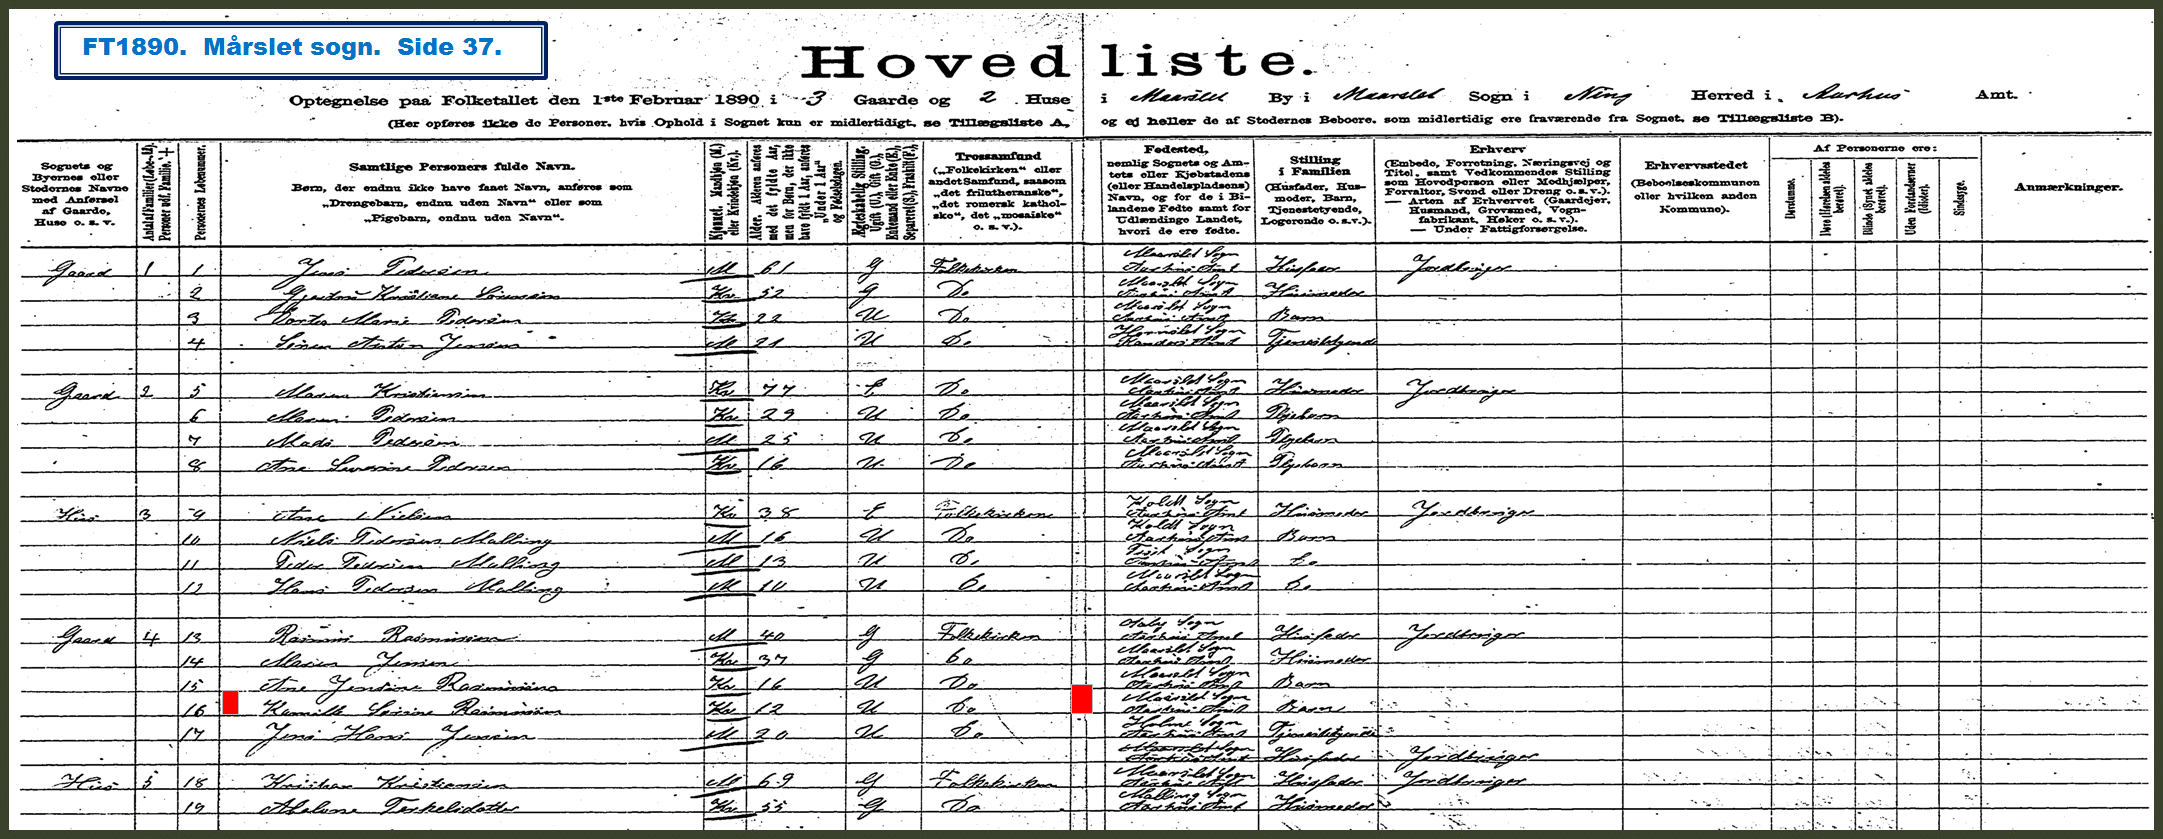 FT1890. Mårslet sogn. Side 37.
Hovedliste.
Optegnelse paa Folketallet den 1ste Februar 1890 i 3 Gaarde og 2 Huse i Maarslet By i Maarslet Sogn i Ning Herred i Aarhus Amt.
(Her opføres ikke de Personer, hvis Ophold i Sognet kun er midlertidigt, se Tillægsliste A, og ej heller de af Stedernes Beboere, som midlertidig ere fraværende fra Sognet, se Tillægsliste B).
Sognets og Byernes eller Stedernes Navne med Anførsel af Gaarde, Huse o. s. v.
Antal af Familier (Løbe-No). Personer udf. Familie. +
Personernes Løbenummer.
Samtlige Personers fulde Navn.
Børn, der endnu ikke have faaet Navn, anføres som „Drengebarn, endnu uden Navn“ eller som „Pigebarn, endnu uden Navn“.
Kjønnet. Mandkjøn (M.) eller Kvindekjøn (Kv.).
Alder. Alderen anføres med det fyldte Aar, men for Børn, der ikke have fyldt 1 Aar, anføres „Under 1 Aar“ og Fødselsdagen.
Ægteskabelig Stilling. Ugift (U.), Gift (G.), Enkemand eller Enke (E.), Separeret (S.), Fraskilt (F.).
Trossamfund („Folkekirken“ eller andet Samfund, saasom „det frilutheranske“, „det romersk katholske“, det „mosaiske“ o. s. v.).
Fødested, nemlig Sognets og Amtets eller Kjøbstadens (eller Handelspladsens) Navn, og for de i Bilandene Fødte samt for Udlændinge Landet, hvori de ere fødte.
Stilling i Familien (Husfader, Husmoder, Barn, Tjenestetyende, Logerende o. s. v.).
Erhverv (Embede, Forretning, Næringsvej og Titel, samt Vedkommendes Stilling som Hovedperson eller Medhjælper, Forvalter, Svend eller Dreng o. s. v.). — Arten af Erhvervet (Gaardejer, Husmand, Grovsmed, Vognfabrikant, Høker o. s. v.). — Under Fattigforsørgelse.
Erhvervsstedet (Beboelseskommunen eller hvilken anden Kommune).
Af Personerne ere:
Døvstumme.
Døve (Hørelsen aldeles berøvet).
Blinde (Synet aldeles berøvet).
Uden Forstandsevner (Idioter).
Sindssyge.
Anmærkninger.
Gaard 1 1 Jens Pedersen M 61 G Folkekirken Maarslet Sogn Aarhus Amt Husfader Jordbruger
2 Gjertrud Kristiane Sørensen Kv 52 G Do Maarslet Sogn Aarhus Amt Husmoder
3 Dorte Marie Pedersen Kv 22 U Do Maarslet Sogn Aarhus Amt Barn
4 Søren Anton Jensen M 21 U Do Sogn Randers Amt Tjenestetyende
Gaard 2 5 Maren Kristensen Kv 77 E Do Maarslet Sogn Aarhus Amt Husmoder Jordbruger
6 Maren Pedersen Kv 29 U Do Maarslet Sogn Aarhus Amt Plejebarn
7 Mads Pedersen M 25 U Do Maarslet Sogn Aarhus Amt Plejebarn
8 Ane Severine Pedersen Kv 16 U Do Maarslet Sogn Aarhus Amt Plejebarn
Hus 3 9 Ane Nielsen Kv 38 E Folkekirken Koldt Sogn Aarhus Amt Husmoder Jordbruger
10 Niels Pedersen Malling M 16 U Do Koldt Sogn Aarhus Amt Barn
11 Peder Pedersen Malling M 13 U Do Sogn Aarhus Amt Do
12 Hans Pedersen Malling M 10 U Do Maarslet Sogn Aarhus Amt Do
Gaard 4 13 Rasmus Rasmussen M 40 G Folkekirken Aaby Sogn Aarhus Amt Husfader Jordbruger
14 Maren Jensen Kv 37 G Do Maarslet Sogn Aarhus Amt Husmoder
15 Ane Jensine Rasmussen Kv 16 U Do Maarslet Sogn Aarhus Amt Barn
16 Kamille Sørine Rasmussen Kv 12 U Do Maarslet Sogn Aarhus Amt Barn
17 Jens Hans Jensen M 20 U Do Holme Sogn Aarhus Amt Tjenestetyende
Maarslet Sogn Aarhus Amt Husfader Jordbruger
Hus 5 18 Kristen Kristensen M 69 G Folkekirken Maarslet Sogn Aarhus Amt Husfader Jordbruger
19 Abelone Terkelsdatter Kv 55 G Do Malling Sogn Aarhus Amt Husmoder